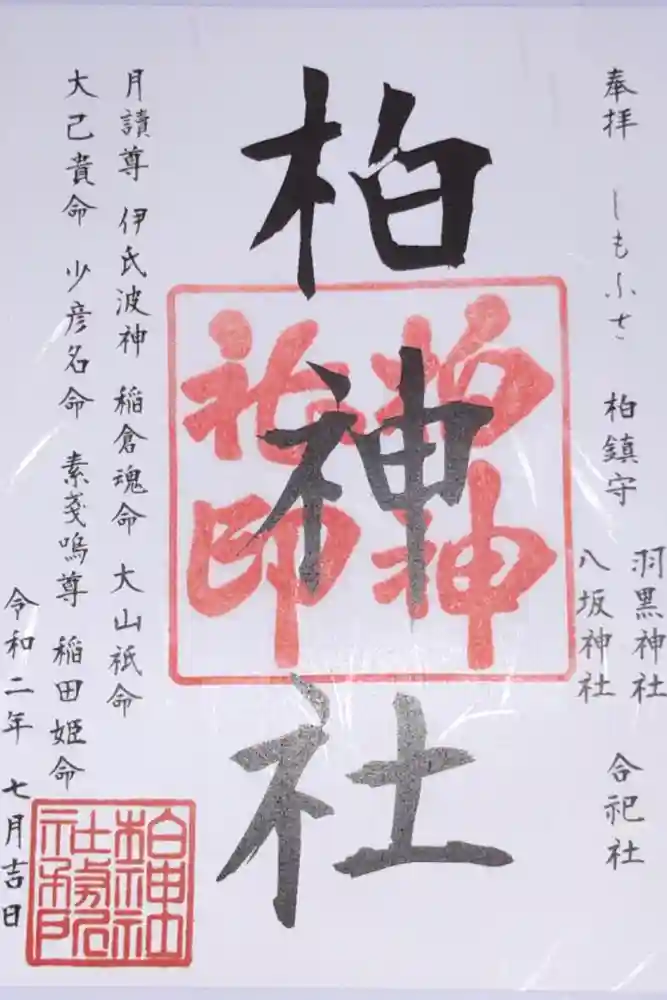 奉拝 しもふさ 柏鎮守 羽黒神社 八坂神社 合祀社
柏神社
柏神社印
月讀尊 伊氐波神 稲倉魂命 大山祇命
大己貴命 少彦名命 素戔嗚尊 稲田姫命
令和二年 七月吉日
柏神社社務所